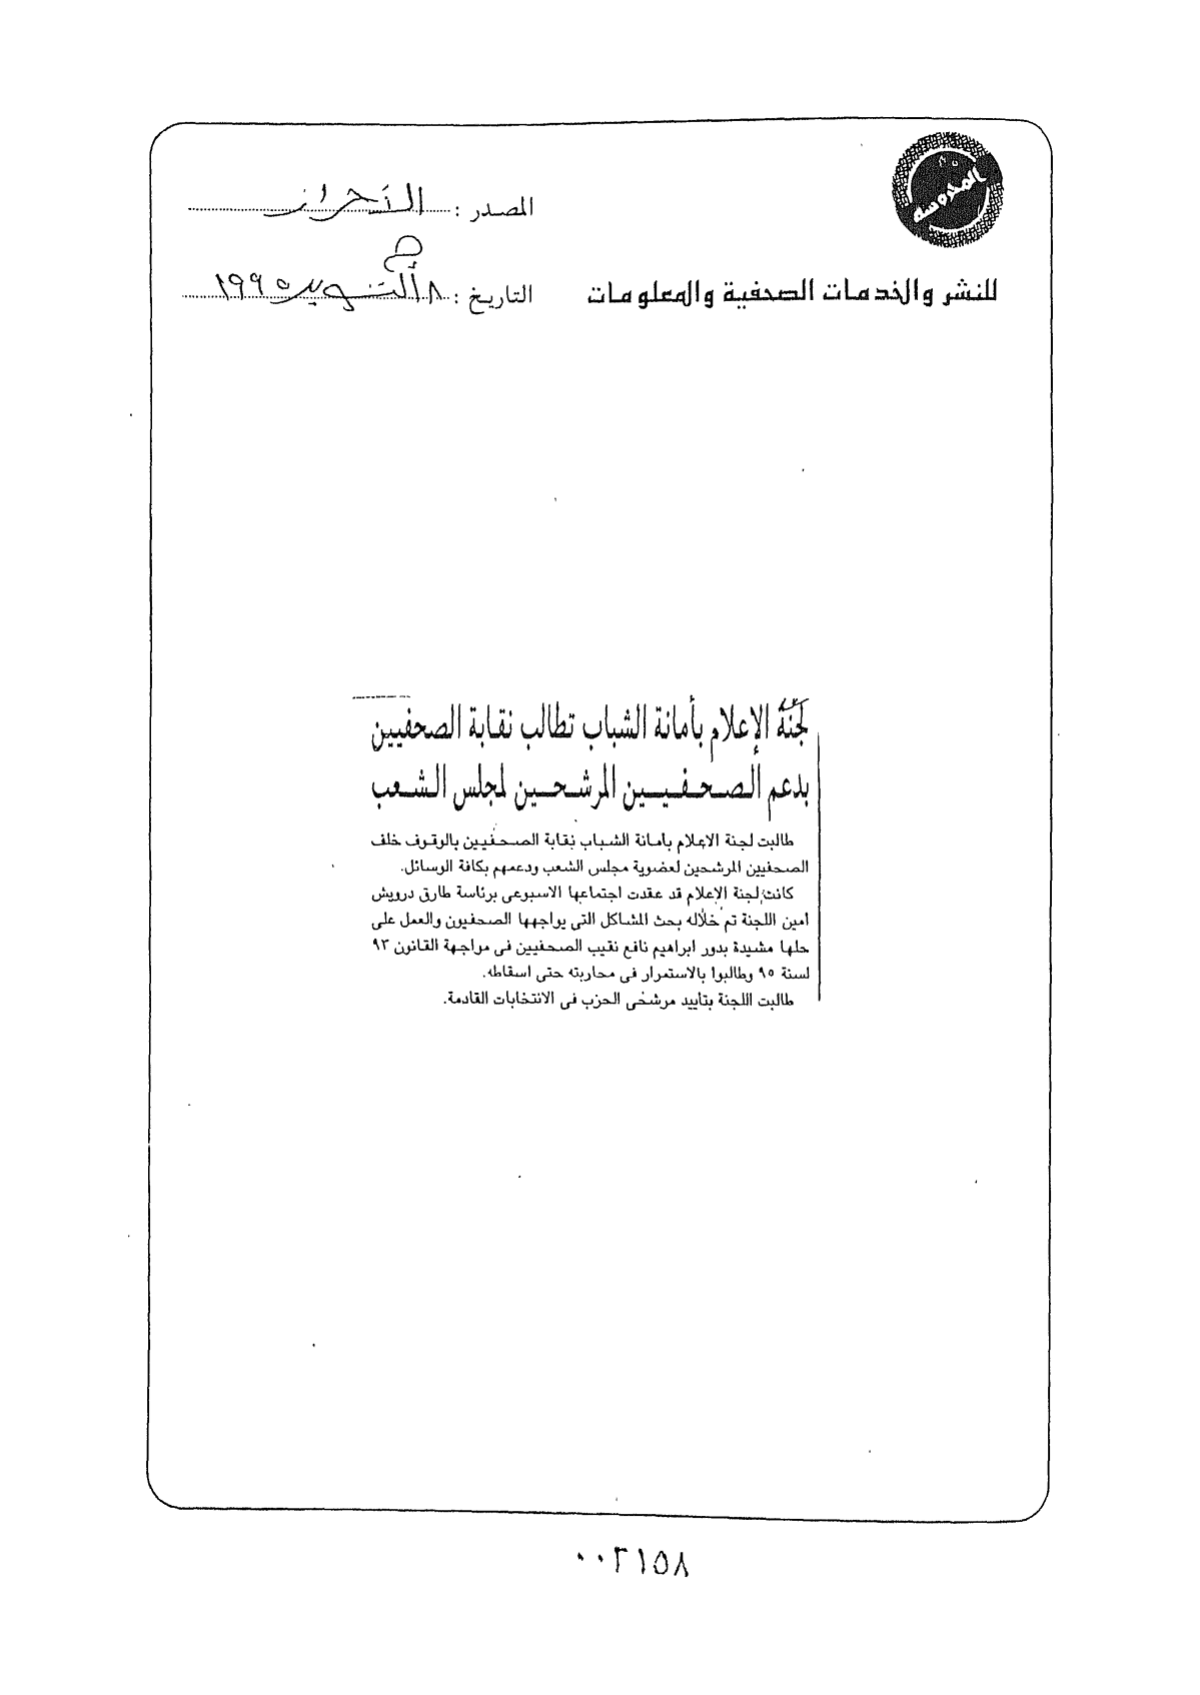 المحروسة
المصدر : الأحرار
التاريخ : ٨ أكتوبر ١٩٩٥
للنشر والخدمات الصحفية والمعلومات
لجنة الإعلام بأمانة الشباب تطالب نقابة الصحفيين
بدعم الصحفيين المرشحين لمجلس الشعب
طالبت لجنة الاعلام بأمانة الشباب نقابة الصحفيين بالوقوف خلف
الصحفيين المرشحين لعضوية مجلس الشعب ودعمهم بكافة الرسائل.
كانت لجنة الإعلام قد عقدت اجتماعها الاسبوعى برئاسة طارق درويش
امين اللجنة تم خلاله بحث المشاكل التى يواجهها الصحفيون والعمل على
حلها مشيدة بدور ابراهيم نافع نقيب الصحفيين فى مواجهة القانون ٩٣
لسنة ٩٥ وطالبوا بالاستمرار فى محاربته حتى اسقاطه.
طالبت اللجنة بتاييد مرشحى الحزب فى الانتخابات القادمة.
٠٠٢١٥٨